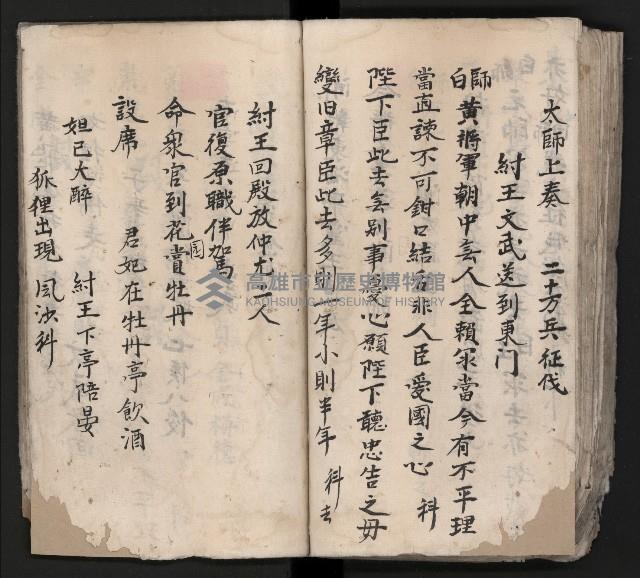 太師上奏 二十万兵征伐
紂王文武送到東門
師白 黄將軍朝中無人全賴 當今有不平理
當直諫不可鉗口結舌非人臣愛國之心 科
陛下臣此去無别事憂心願陛下聽忠告之毋
變旧章臣此去多則 年小則半年 科去
紂王回殿放仲尤二人
官復原職伴駕
命衆官到花园賞牡丹
設席 君妃在牡丹亭飲酒
妲己大醉 紂王下亭陪晏
狐狸出現 風沙科
高雄市立歷史博物館
KAOHSIUNG MUSEUM OF HISTORY